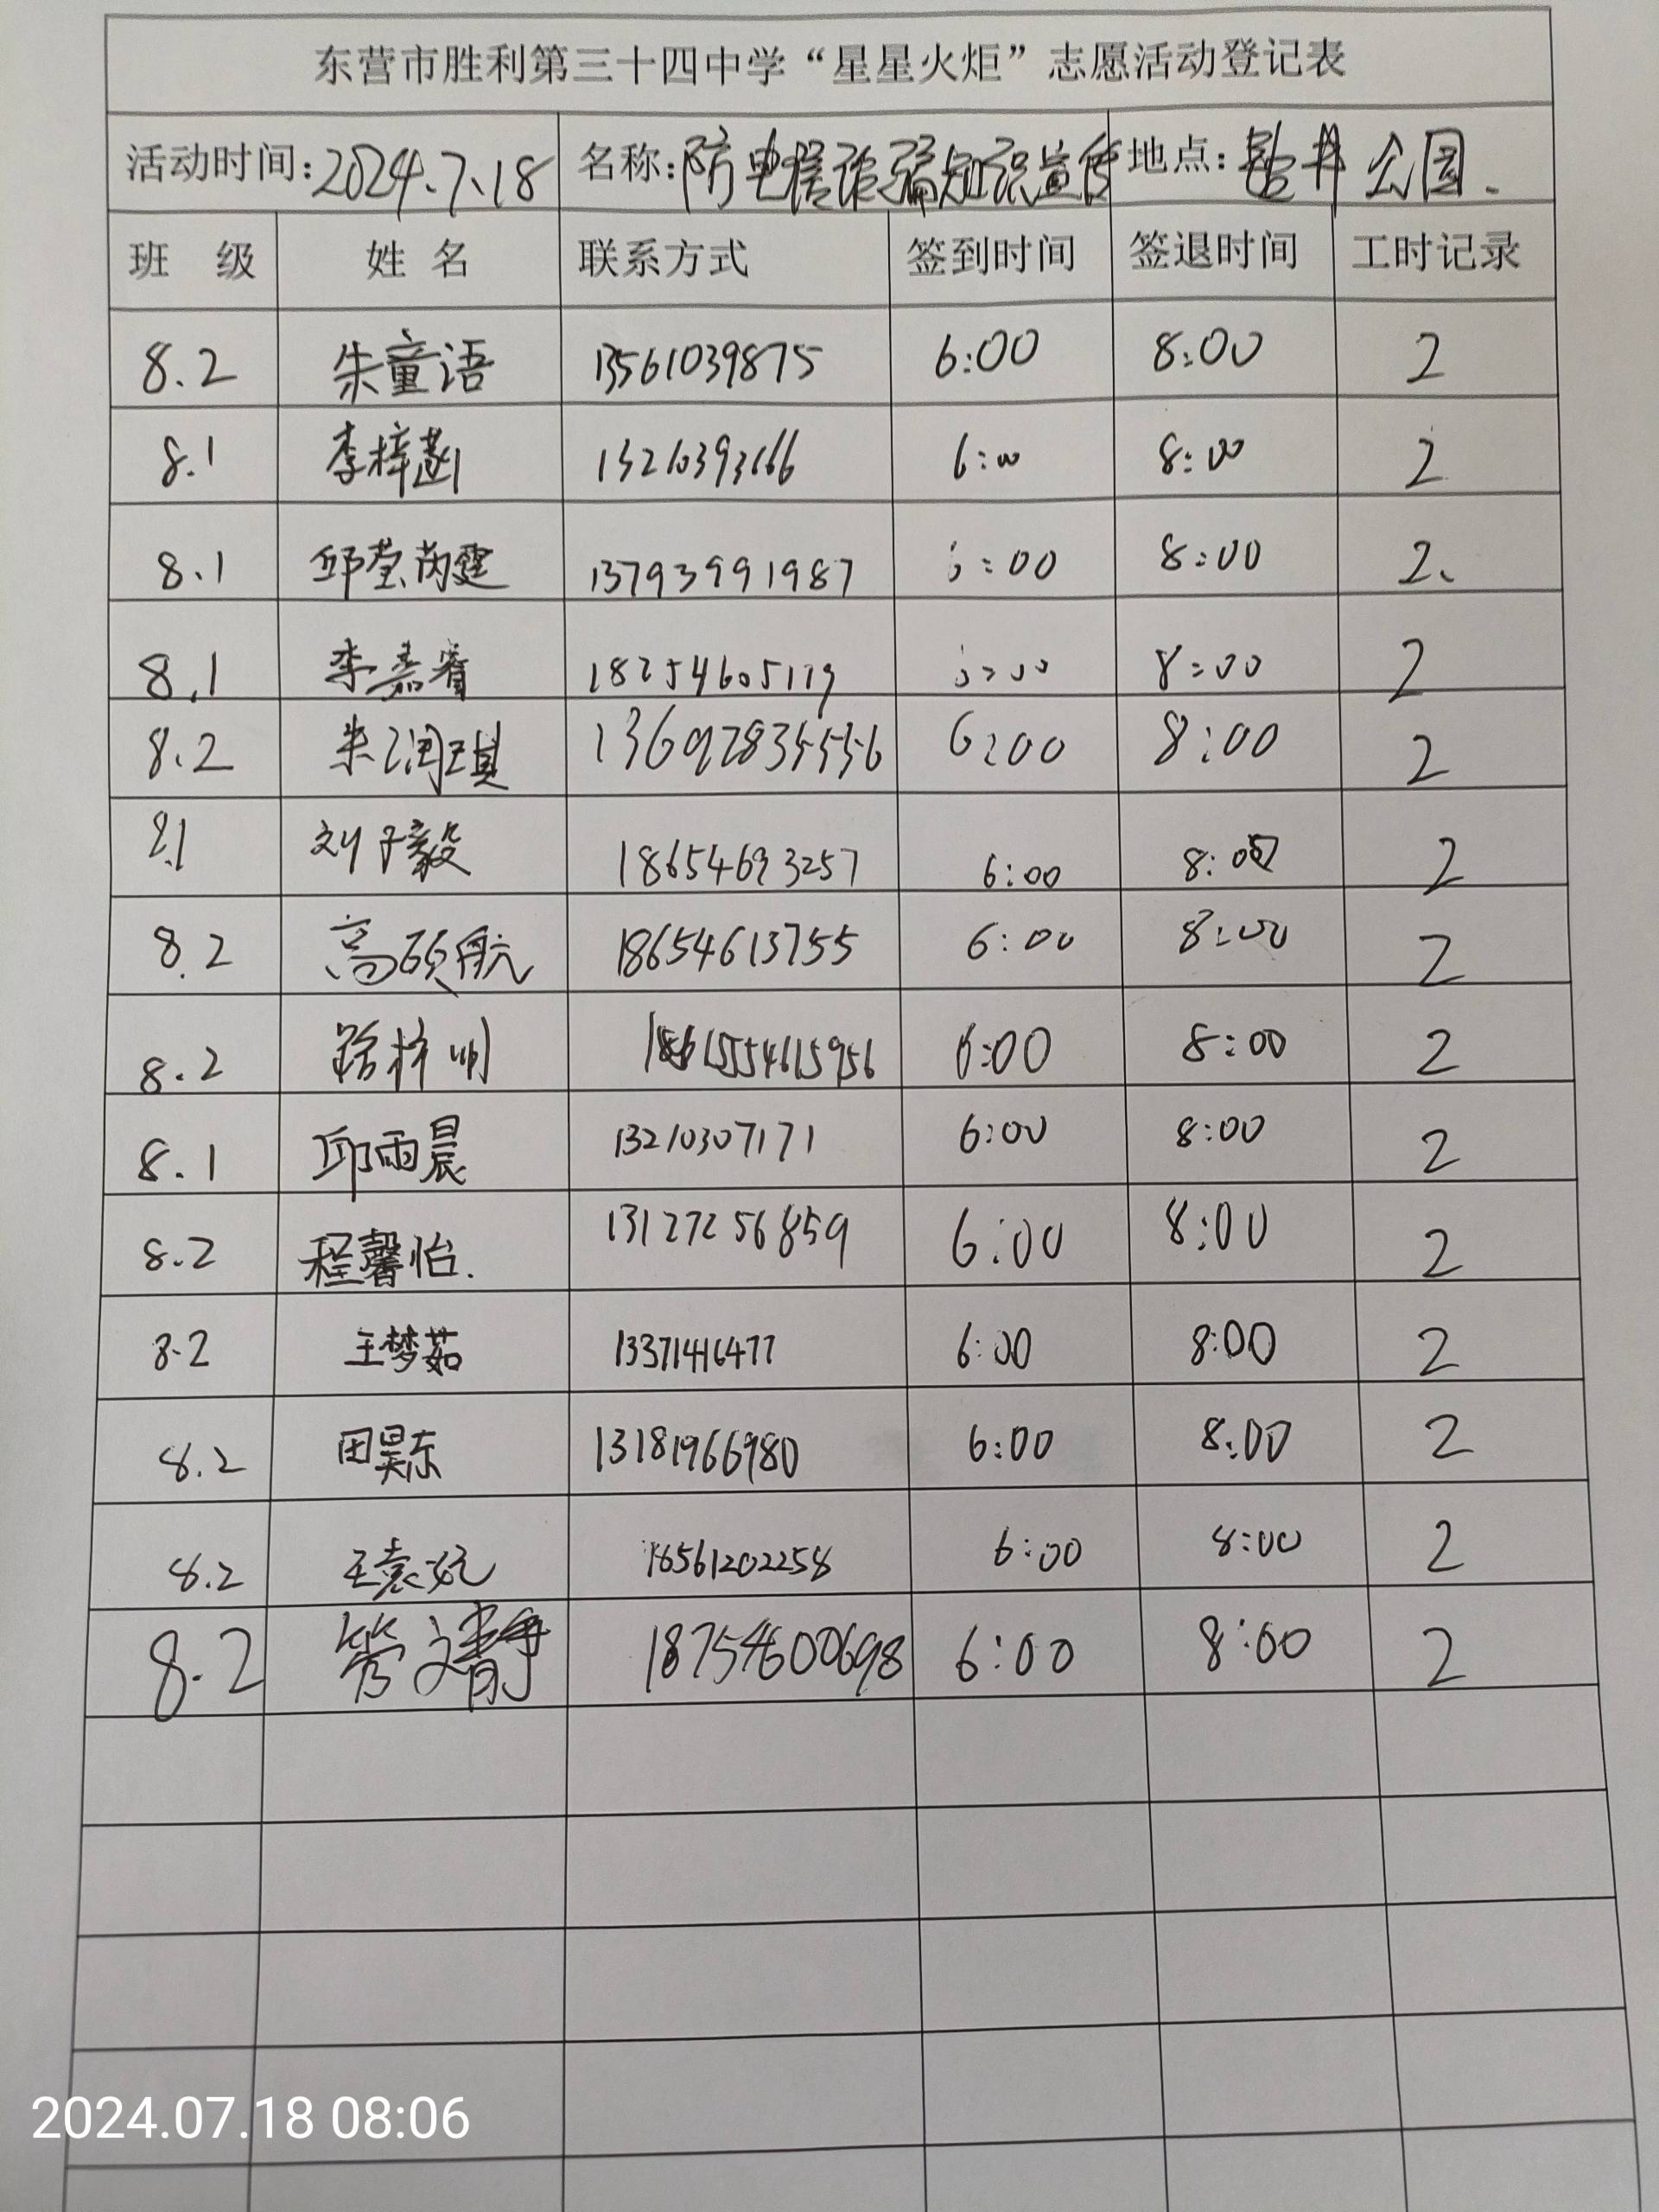 东营市胜利第三十四中学“星星火炬”志愿活动登记表
活动时间:2024.7.18 名称:防电信诈骗知识宣传 地点: 公园.
班 级 姓 名 联系方式 签到时间 签退时间 工时记录
8.2 朱童语 13561039875 6:00 8:00 2
8.1 李梓菡 6:00 8:00 2
8.1 邱莹芮霆 13793991987 :00 8:00 2、
8.1 李嘉睿 18254605119 8:00 2
8.2 朱润琪 6:00 8:00 2
8.1 刘子毅 18654693257 6:00 8:00 2
8.2 高硕航 18654613755 6:00 8:00 2
8.2 6:00 8:00 2
8.1 邱雨晨 13210307171 6:00 8:00 2
8.2 程馨怡. 13127256859 6:00 8:00 2
8.2 王梦茹 13371416477 6:00 8:00 2
8.2 田昊东 13181966980 6:00 8:00 2
8.2 王袁 18561202258 6:00 8:00 2
8.2 管文静 18754600698 6:00 8:00 2
2024.07.18 08:06